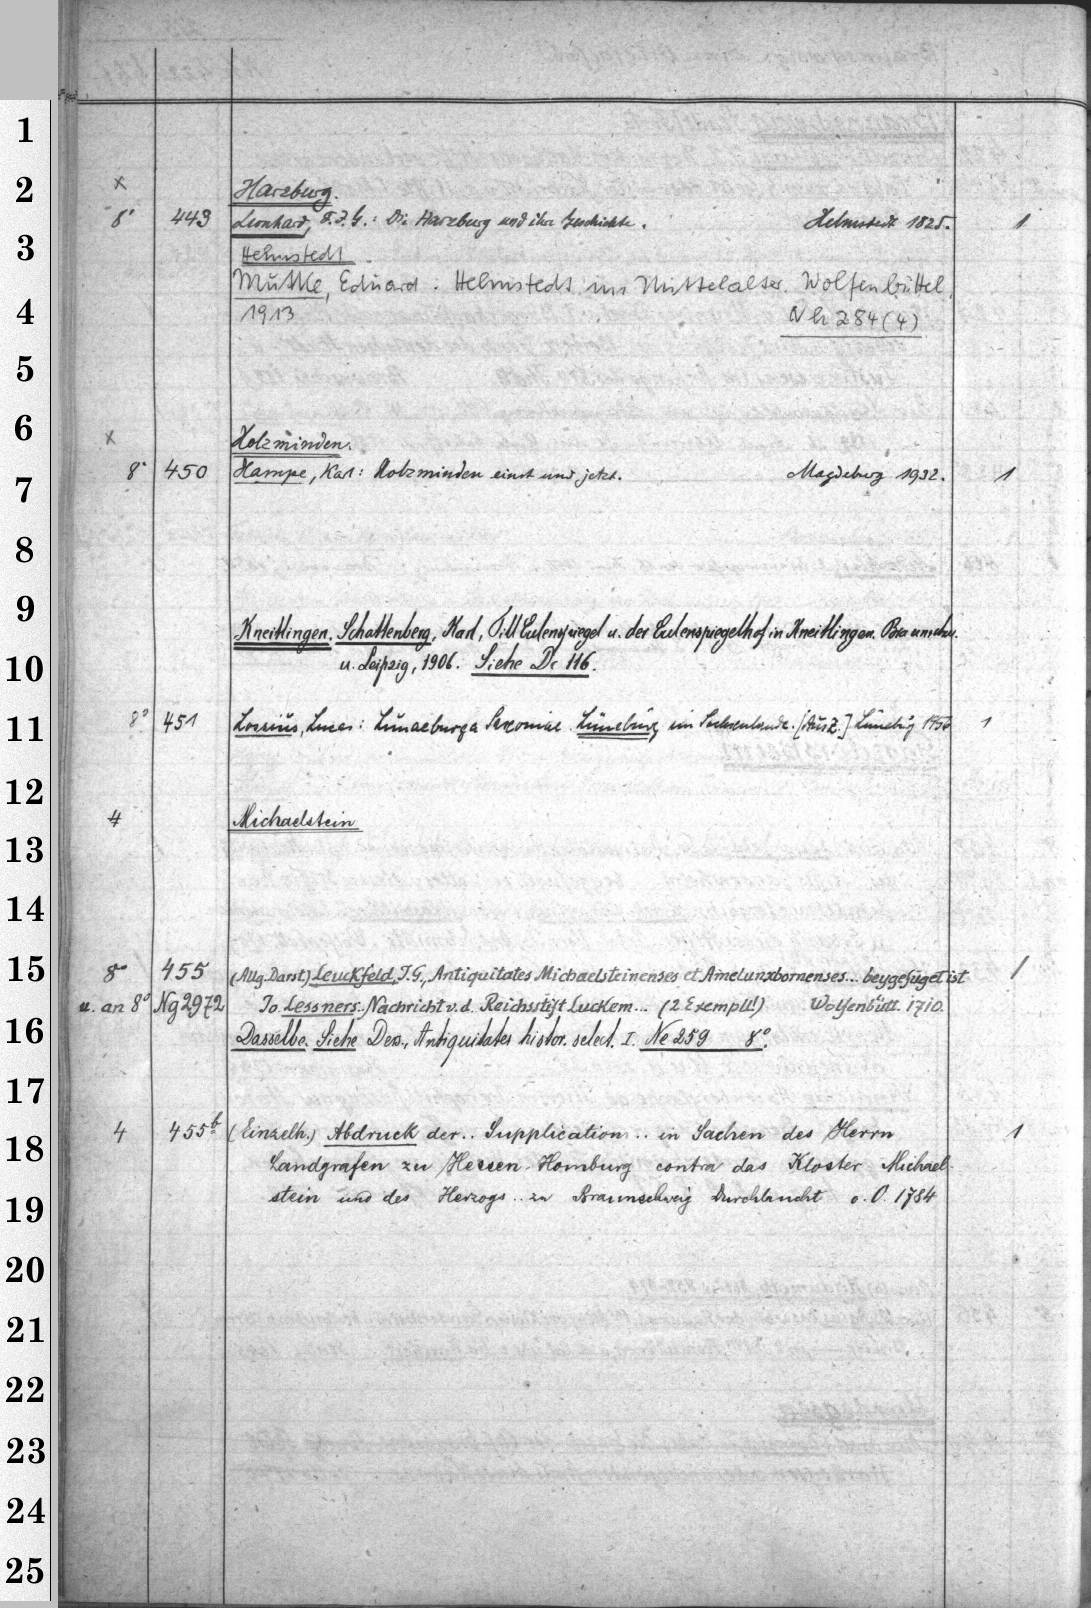 1
2
x Harzburg.
8° 449 Leonhard, F. J. G.: Die Harzburg und ihre Geschichte. Helmstedt 1825. 1
3
Helmstedt
Mutke, Eduard: Helmstedt im Mittelalter. Wolfenbüttel,
4
1913 Nh 284 (4)
5
6
x Holzminden.
7
8° 450 Hampe, Karl: Holzminden einst und jetzt. Magdeburg 1932. 1
8
9
Kneitlingen. Schattenberg, Karl, Till Eulenspiegel u. der Eulenspiegelhof in Kneitlingen. Braunschw.
10
u. Leipzig, 1906. Siehe Dc 116.
11
8° 451 Lossius, Lucas: Lunaeburga Saxoniae. Lüneburg im Sachsenlande. [AusZ.] Lüneburg 1
12
4 Michaelstein
13
14
15
8° 455 (Allg. Darst) Leuckfeld, J. G., Antiquitates Michaelsteinenses et Amelunxbornenses... beygefüget ist 1
u. an 8° Ng 2972 Jo. Lessners.. Nachricht v. d. Reichsstift Luckem... (2 Exempll!) Wolfenbüttl. 1710.
16
Dasselbe. Siehe Dess., Antiquitates histor. select. I. Ne 259 8°.
17
18
4 455b (Einzelh.) Abdruck der.. Supplication.. in Sachen des Herrn 1
Landgrafen zu Hessen-Homburg contra das Kloster Michael-
19
stein und des Herzogs.. zu Braunschweig Durchlaucht o. O. 1784
20
21
22
23
24
25